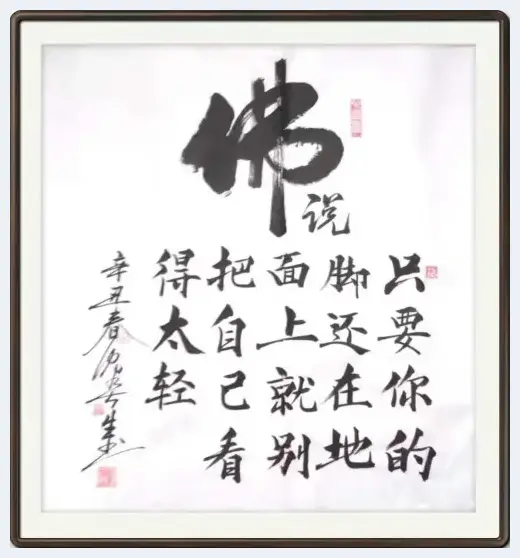 佛说
只要你的
脚还在地
面上就别
把自己看
得太轻
辛丑春